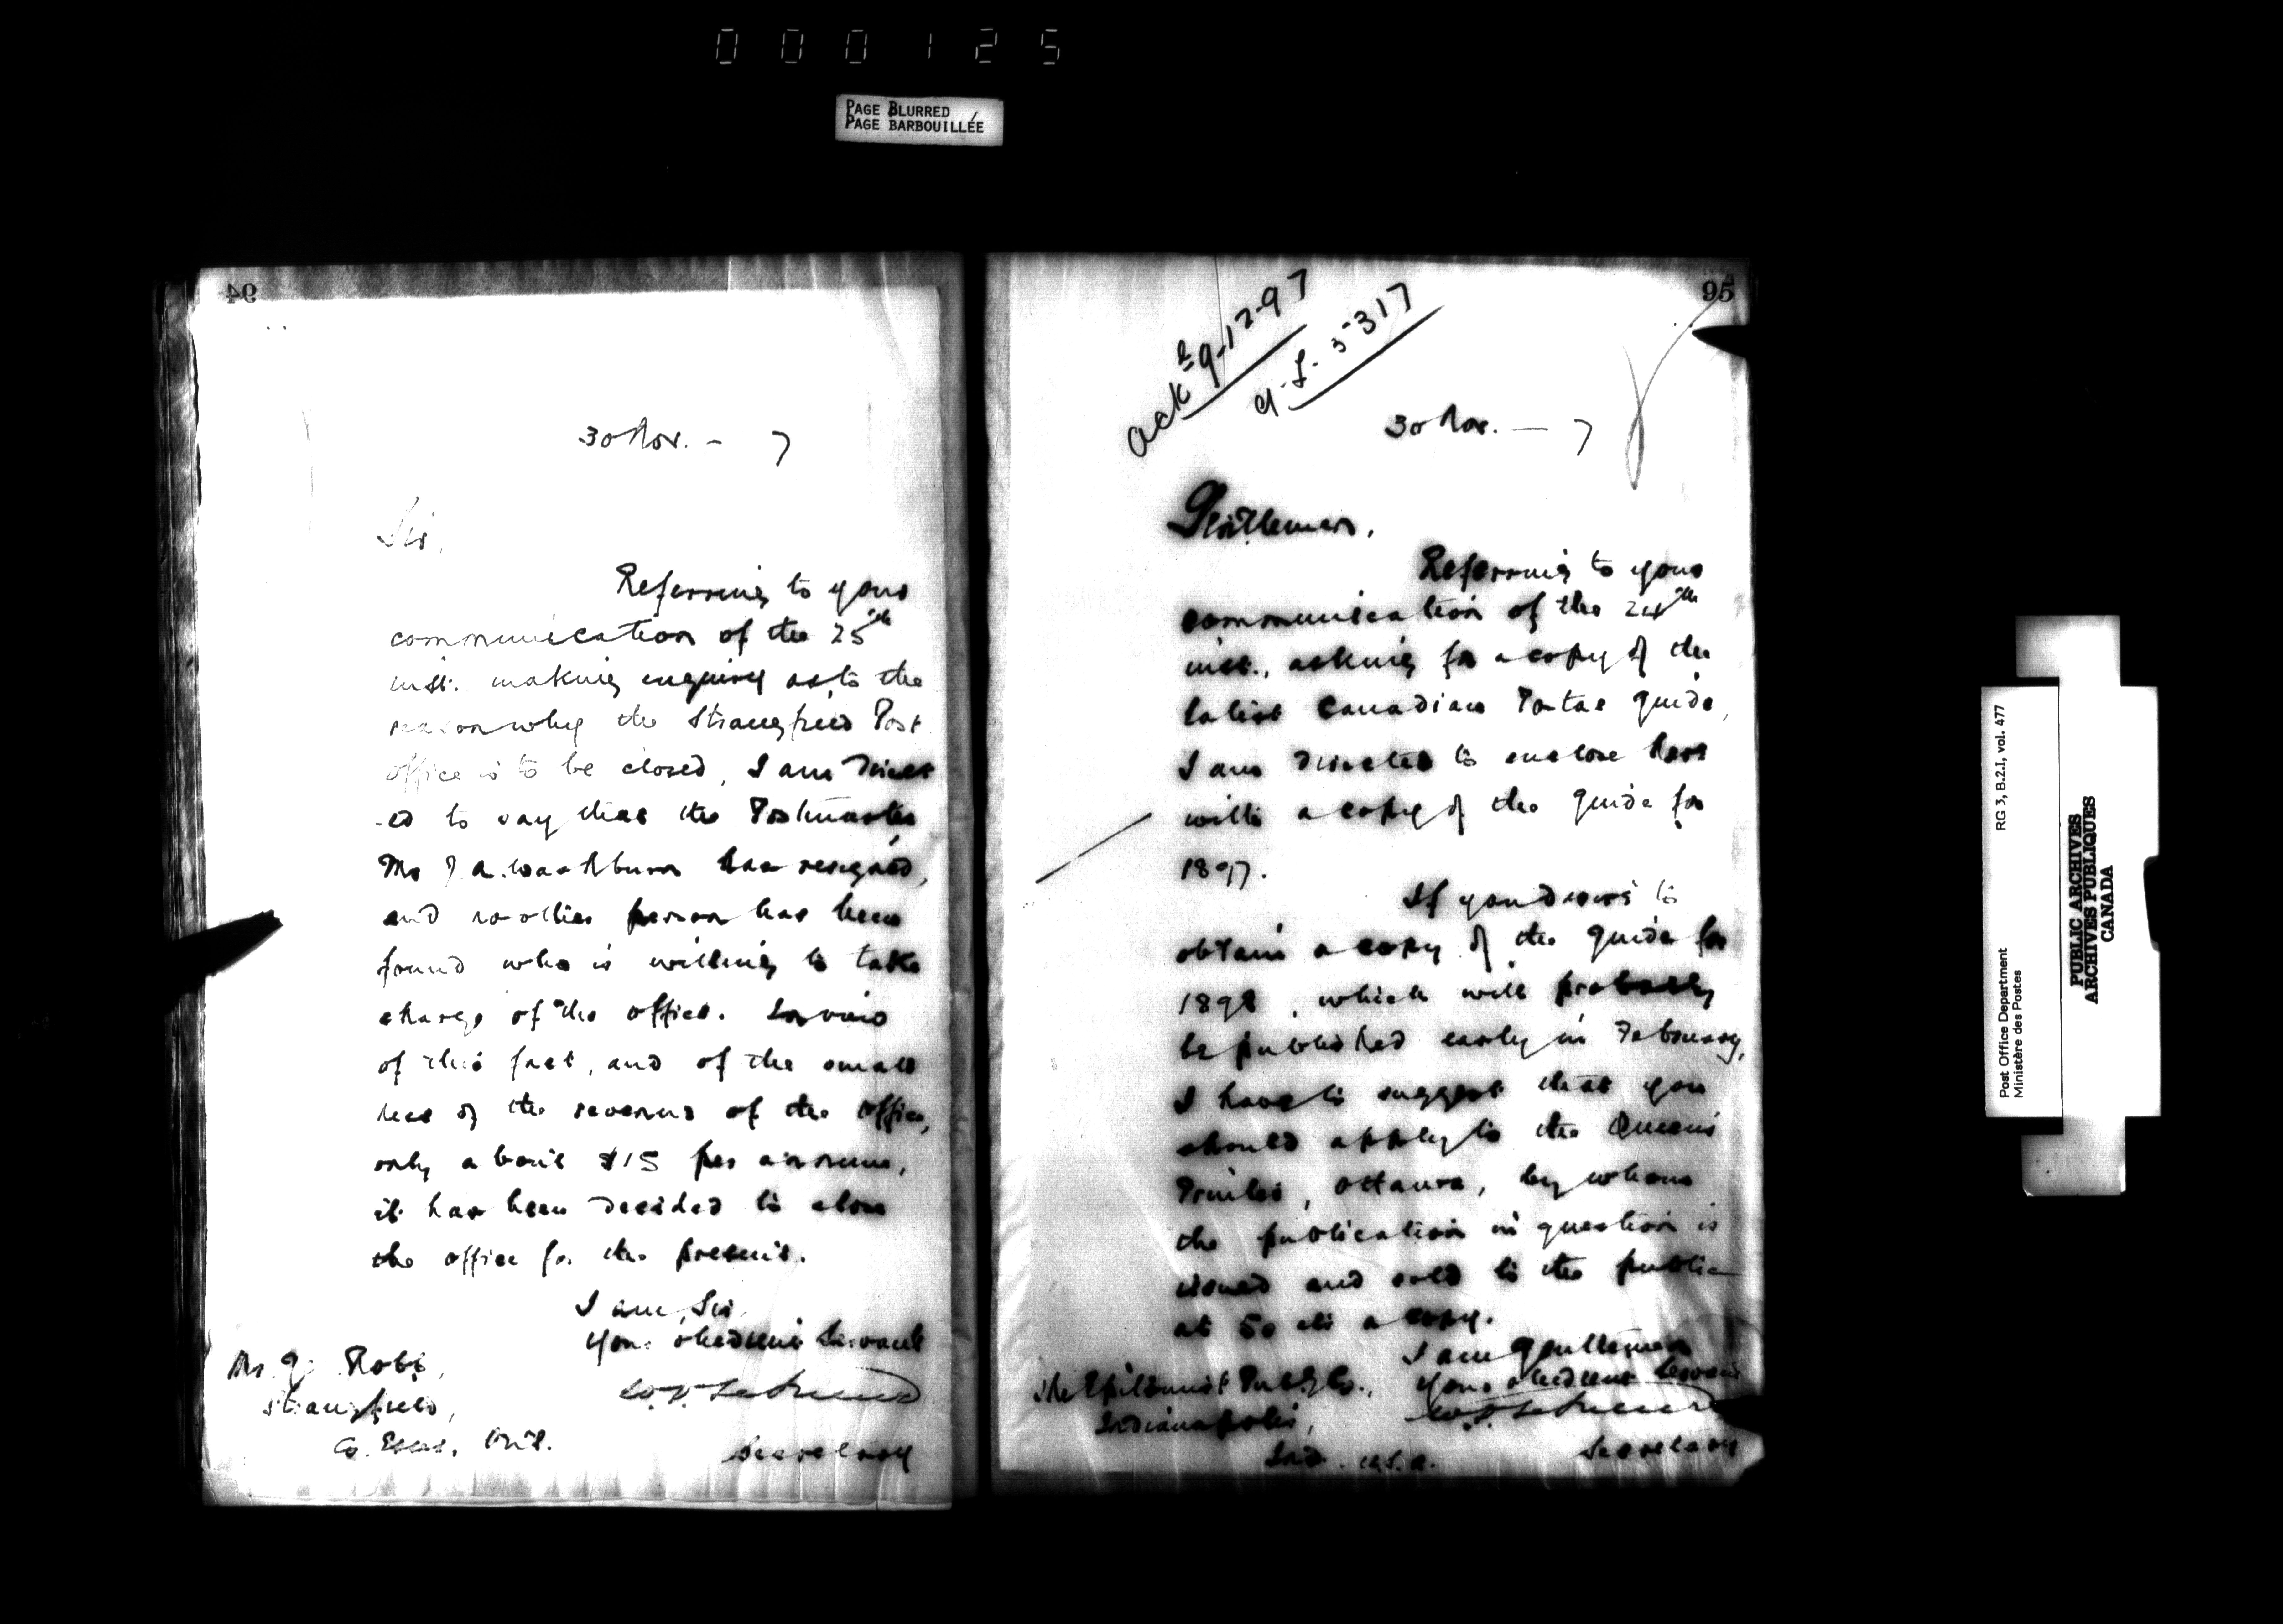 000125
PAGE BLURRED
PAGE BARBOUILLÉE
94
30 Nov. - 7
Sir,
Referring to your
communication of the 25th
inst. making enquiry as to the
reason why the Strangfield Post
office is to be closed, I am direct
-ed to say that the Postmaster
Mr J A. Washburn has resigned,
and no other person has been
found who is willing to take
charge of the office. In view
of this fact, and of the small
ness of the revenue of the office,
only about $15 per annum,
it has been decided to close
the office for the present.
I am, Sir
Your obedient Servant
Secretary
Mr. J. Robt,
Strangfield,
Co. Essex, Ont.
95
Ackd 9-12-97
30 Nov. — 7
Gentlemen,
Referring to your
communication of the 24th
inst., asking for a copy of the
latest Canadian Postal guide,
I am directed to enclose here
with a copy of the guide for
1897.
If you desire to
obtain a copy of the guide for
1898, which will probably
be published early in February,
I have to suggest that you
should apply to the Queen's
Printer, Ottawa, by whom
the publication in question is
issued and sold to the public
at 50 cts a copy.
I am Gentlemen
Your obedient Servant
Secretary
The Epitomist Pub'g Co.,
Indianapolis,
Ind. U.S.A.
Post Office Department
Ministère des Postes
RG 3, B.2.I, vol. 477
PUBLIC ARCHIVES
ARCHIVES PUBLIQUES
CANADA